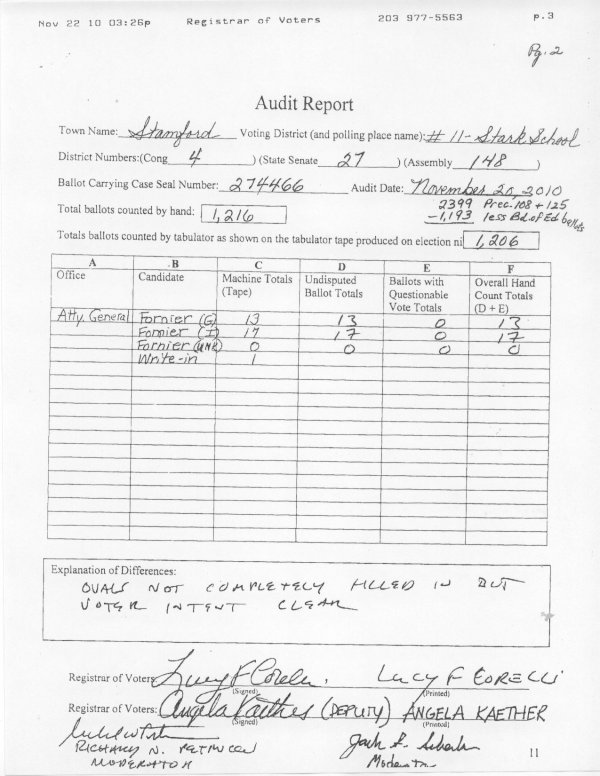 Nov 22 10 03:26p Registrar of Voters 203 977-5563 p.3
Pg. 2
Audit Report
Town Name: Stamford Voting District (and polling place name): # 11- Stark School
District Numbers:(Cong 4 ) (State Senate 27 ) (Assembly 148 )
Ballot Carrying Case Seal Number: 274466 Audit Date: November 20, 2010
2399 Prec. 108 + 125
Total ballots counted by hand: 1,216 -1,193 less Bd. of Ed ballots
Totals ballots counted by tabulator as shown on the tabulator tape produced on election ni 1,206
A B C D E F
Office Candidate Machine Totals (Tape) Undisputed Ballot Totals Ballots with Questionable Vote Totals Overall Hand Count Totals (D + E)
Atty. General Fornier (G) 13 13 0 13
Fornier (I) 17 17 0 17
Fornier (UNK) 0 0 0 0
Write-in 1
Explanation of Differences:
OVALS NOT COMPLETELY FILLED IN BUT
VOTER INTENT CLEAR
Registrar of Voters: Lucy F Corelli. LUCY F CORELLI
(Signed) (Printed)
Registrar of Voters: Angela Kaethes (DEPUTY) ANGELA KAETHER
(Signed) (Printed)
RICHARD N.
MODERATOR Moderator
11